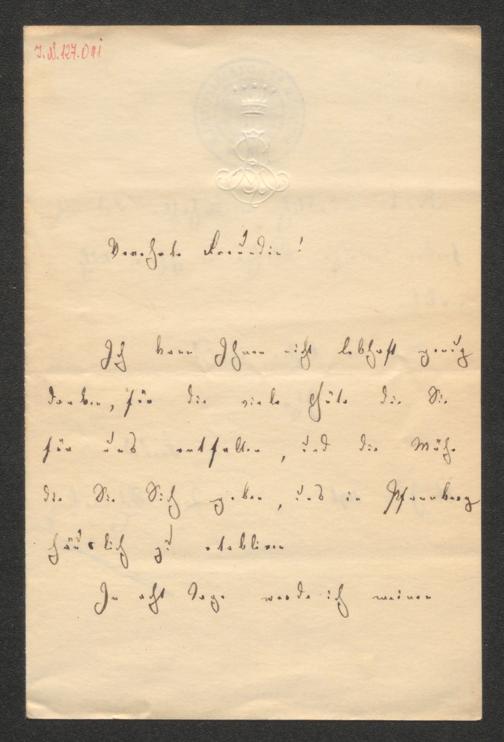 J.N. 127.041
Verehrte Freundin!
Ich kann Ihnen nicht lebhaft genug
danken, für die viele Güte die Sie
für uns entfalten, und die Mühe
die Sie Sich geben, uns in Pfannberg
häuslich zu etabliren
In acht Tage werde ich meinen